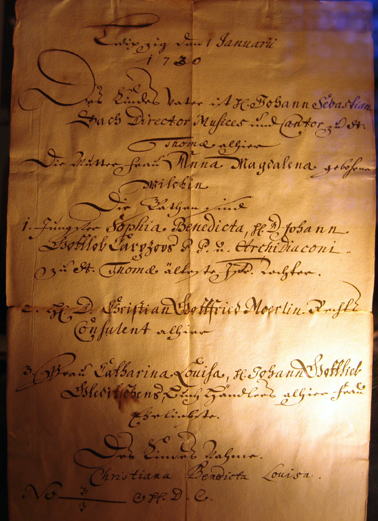 Leipzig den 1 Januarii
1730
Des Kindes Vater ist H. Johann Sebastian
Bach Director Musices und Cantor zu St.
Thomæ alhier
Die Mutter Frau Anna Magdalena gebohrne
Wilckin
Die Pathen sind
1. Jungfer Sophia Benedicta, H. D. Johann
Gottlob Carpzovs P. P. u. Archidiaconi
zu St. Thomæ älteste Tochter.
2. H. D. Christian Gottfried Moerlin Rechts
Consulent alhier
3. Frau Catharina Louisa, H. Johann Gottlieb
Gleditschens Buch Händlers alhier Frau
Eheliebste.
Des Kindes Nahme.
Christiana Benedicta Louisa.
No 3